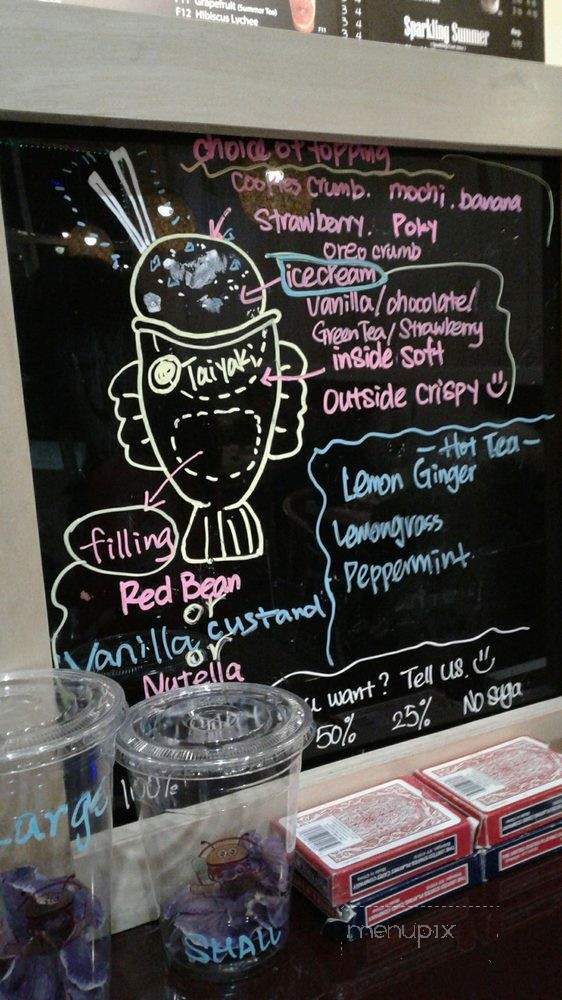 F11 Grapefruit (Summer Tea)
F12 Hibiscus Lychee
Sparkling Summer
choice of topping
cookies crumb. mochi. banana
Strawberry. Poky
oreo crumb
icecream
Vanilla/chocolate/
Green Tea/Strawberry
Taiyaki
inside soft
Outside crispy
- Hot Tea -
Lemon Ginger
Lemongrass
Peppermint
filling
Red Bean
or
Vanilla custand
or
Nutella
want? Tell us.
100%
50%
25%
No suga
Large
SMALL
menupix